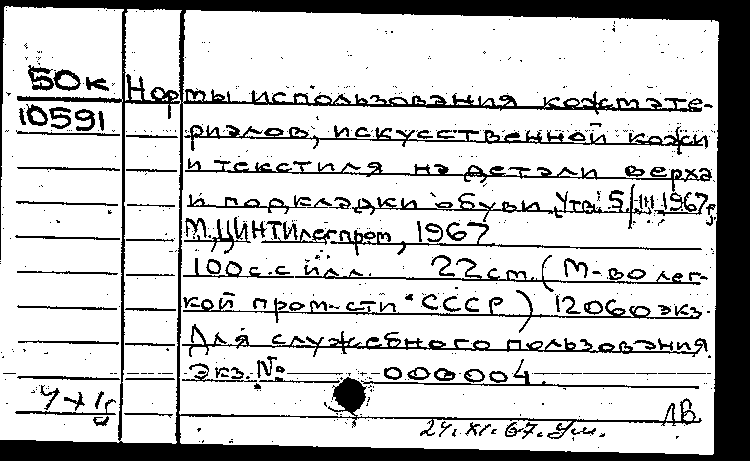 50к
10591
Нормы использования кожмате-
риалов, искусственной кожи
и текстиля на детали верха
и подкладки обуви. Утв. 5/III 1967г
М., ЦИНТИлегпром, 1967
100 с. с илл. 22 см. (М-во лег-
кой пром-сти СССР) 12060 экз.
Для служебного пользования
Экз. № 000004.
ЛВ
24.XI.67.